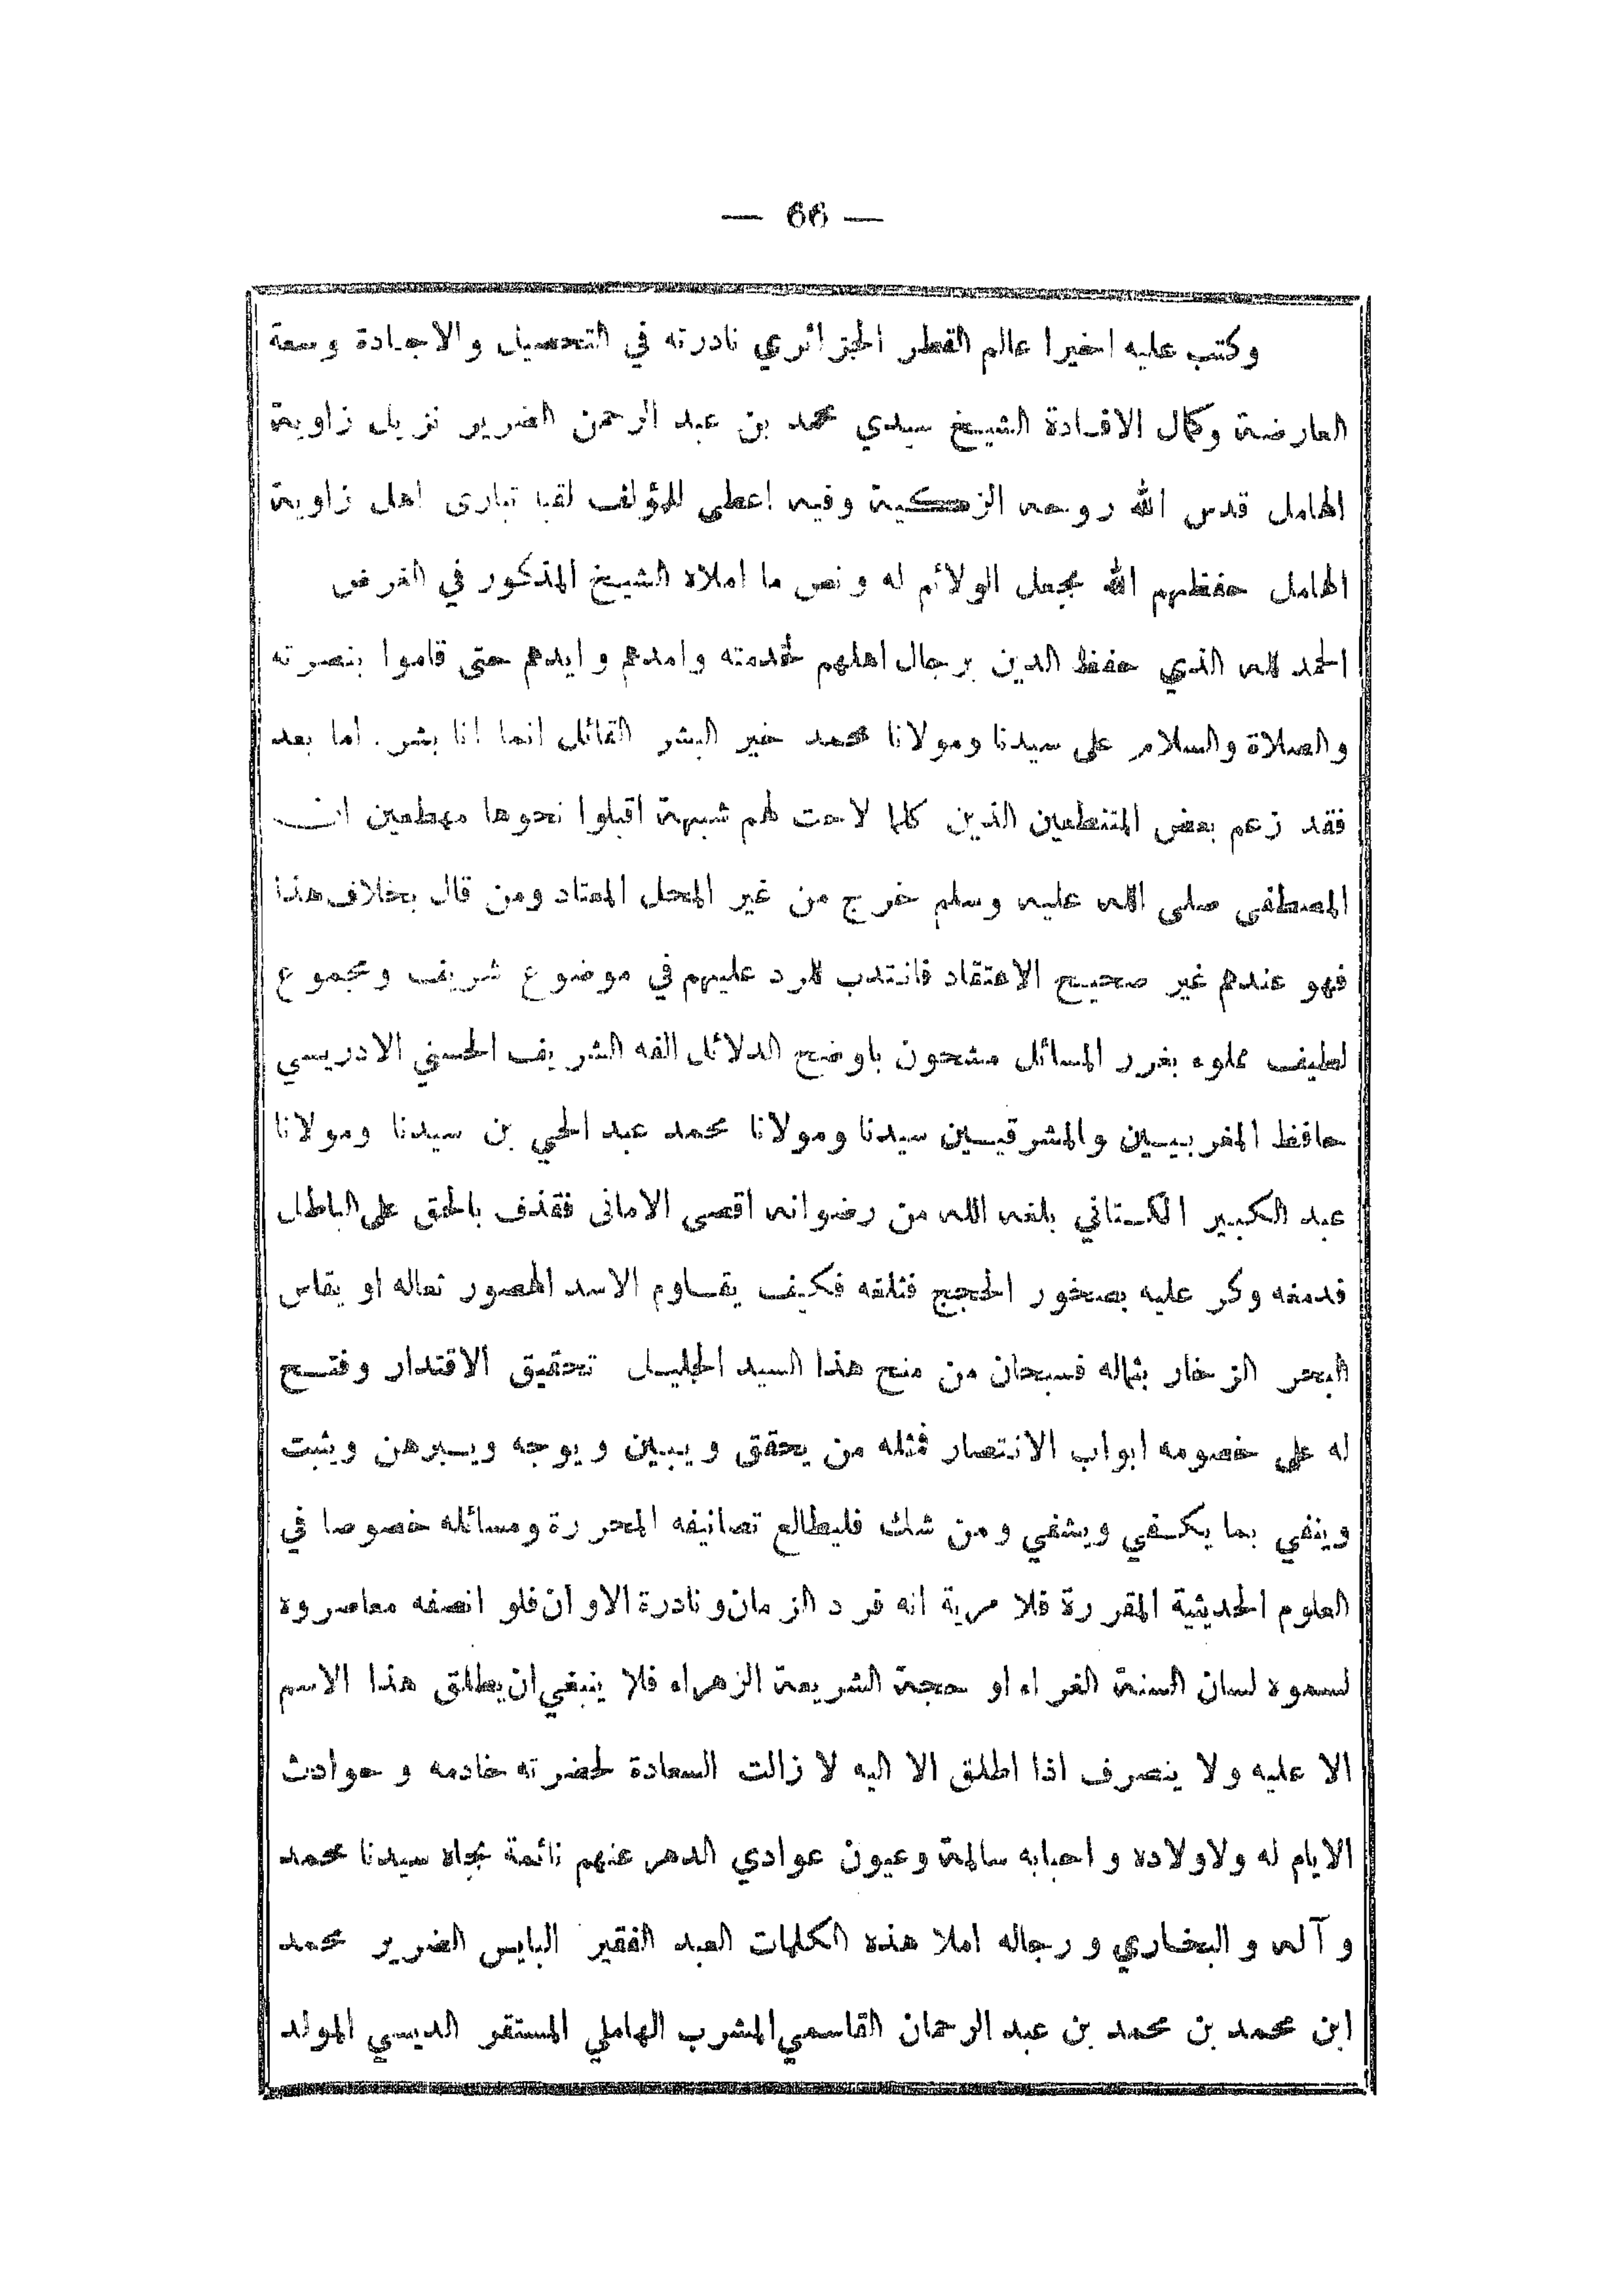 — 66 —
وكتب عليه اخيرا عالم القطر الجزائري نادرته في التحصيل والاجادة وسعة
العارضة وكمال الافادة الشيخ سيدي محمد بن عبد الرحمن الضرير نزيل زاوية
الهامل قدس الله روحه الزكية وفيه اعطى للمؤلف لقبا تبارى اهل زاوية
الهامل حفظهم الله بجعل الولائم له ونص ما املاه الشيخ المذكور في الغرض
الحمد لله الذي حفظ الدين برجال اهلهم لخدمته وامدهم وايدهم حتى قاموا بنصرته
والصلاة والسلام على سيدنا ومولانا محمد خير البشر القائل انما انا بشر. اما بعد
فقد زعم بعض المتنطعين الذين كلما لاحت لهم شبهة اقبلوا نحوها مهطعين ان
المصطفى صلى الله عليه وسلم خرج من غير المحل المعتاد ومن قال بخلاف هذا
فهو عندهم غير صحيح الاعتقاد فانتدب للرد عليهم في موضوع شريف ومجموع
لطيف مملوء بغرر المسائل مشحون باوضح الدلائل الفه الشريف الحسني الادريسي
حافظ المغربيين والمشرقيين سيدنا ومولانا محمد عبد الحي بن سيدنا ومولانا
عبد الكبير الكتاني بلغه الله من رضوانه اقصى الامانى فقذف بالحق على الباطل
فدمغه وكر عليه بصخور الحجج فثلغه فكيف يقاوم الاسد الهصور ثعاله او يقاس
البحر الزخار بثماله فسبحان من منح هذا السيد الجليل تحقيق الاقتدار وفتح
له على خصومه ابواب الانتصار فمثله من يحقق ويبين ويوجه ويبرهن ويثبت
وينفي بما يكفي ويشفي ومن شك فليطالع تصانيفه المحررة ومسائله خصوصا في
العلوم الحديثية المقررة فلا مرية انه فرد الزمان ونادرة الاوان فلو انصفه معاصروه
لسموه لسان السنة الغراء او حجة الشريعة الزهراء فلا ينبغي ان يطلق هذا الاسم
الا عليه ولا ينصرف اذا اطلق الا اليه لا زالت السعادة لحضرته خادمه وحوادث
الايام له ولاولاده واحبابه سالمة وعيون عوادي الدهر عنهم نائمة بجاه سيدنا محمد
وآله والبخاري ورجاله املا هذه الكلمات العبد الفقير البايس الضرير محمد
ابن محمد بن محمد بن عبد الرحمان القاسمي المشرب الهاملي المستقر الديسي المولد